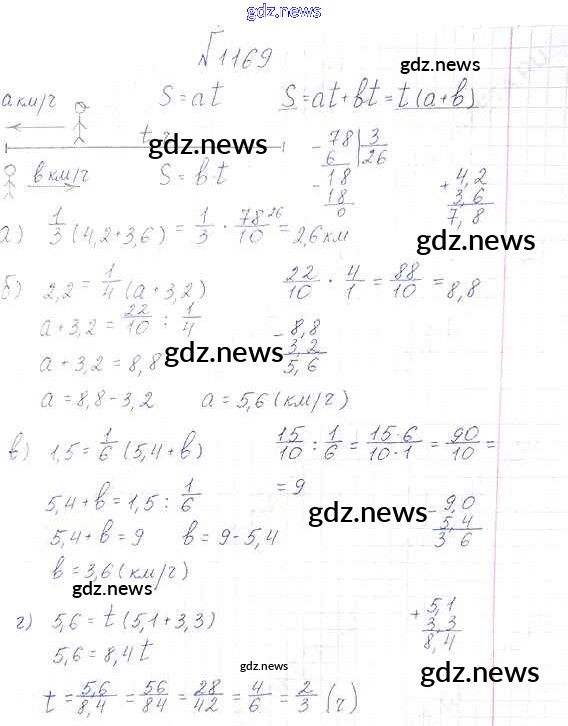 gdz.news
№1169
gdz.news
a км/ч S = at S = at + bt = t(a+b)
gdz.news
b км/ч S = b·t
78 | 3
6 26
18
18
0
+ 4,2
3,6
7,8
а) 1/3 (4,2+3,6) = 1/3 · 78/10 26 = 2,6 км
б) 2,2 = 1/4 (a+3,2) 22/10 · 4/1 = 88/10 = 8,8
a+3,2 = 22/10 : 1/4
a+3,2 = 8,8 gdz.news
- 8,8
3,2
5,6
a = 8,8-3,2 a = 5,6 (км/ч)
в) 1,5 = 1/6 (5,4+b) 15/10 : 1/6 = 15·6/10·1 = 90/10 =
= 9
5,4+b = 1,5 : 1/6
gdz.news
5,4+b = 9 b = 9-5,4
- 9,0
5,4
3 6
b = 3,6 (км/ч)
gdz.news
г) 5,6 = t (5,1+3,3)
+ 5,1
3,3
8,4
5,6 = 8,4t
gdz.news gdz.news
t = 5,6/8,4 = 56/84 = 28/42 = 4/6 = 2/3 (ч)